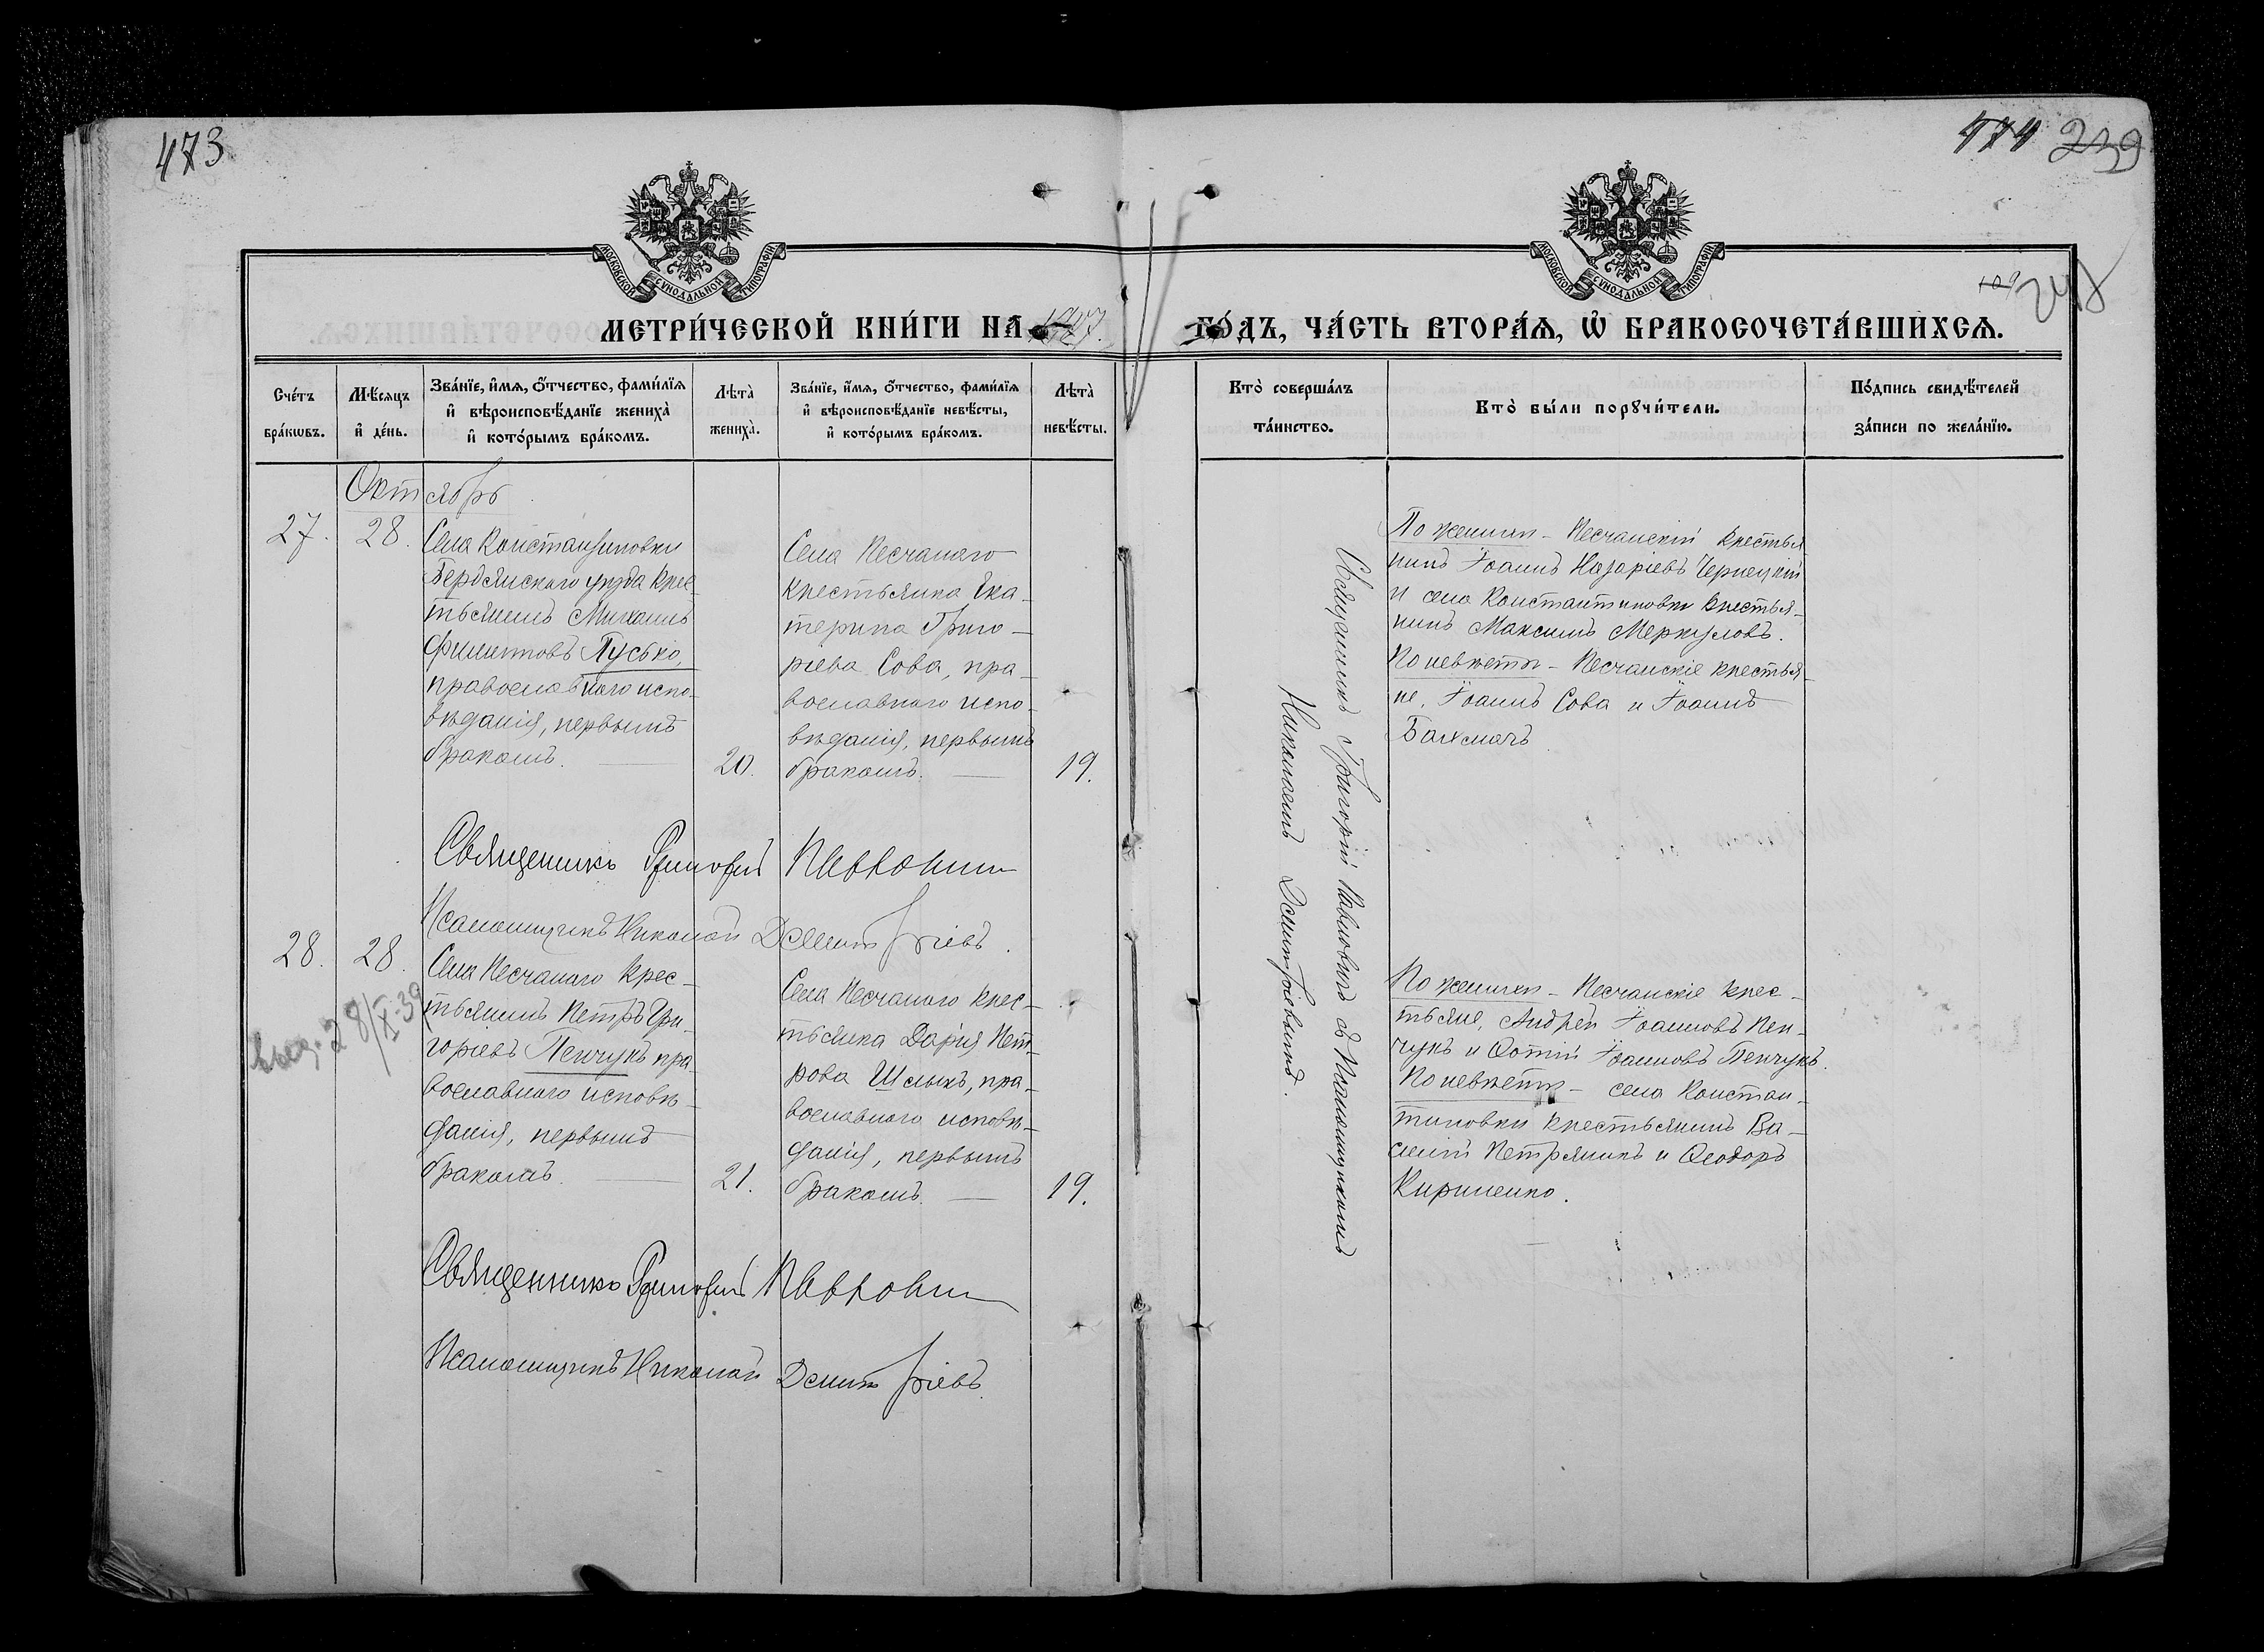 473
474 239
МОСКОВСКОЙ СѴНОДАЛЬНОЙ ТИПОГРАФІИ
МОСКОВСКОЙ СѴНОДАЛЬНОЙ ТИПОГРАФІИ
МЕТРИ́ЧЕСКОЙ КНИ́ГИ НА̀
ГО́ДЪ, ЧА́СТЬ ВТОРА́Ѧ, Ѽ БРАКОСОЧЕТА́ВШИХСѦ.
Сче́тъ бра́кѡвъ.
Мѣ́сѧцъ и҆ де́нь.
Зва́нїе, и҆́мѧ, ѻ҆́тчество, фами́лїѧ и҆ вѣроисповѣ́данїе жениха̀ и҆ кото́рымъ бра́комъ.
Лѣ́та̀ жениха̀.
Зва́нїе, и҆́мѧ, ѻ҆́тчество, фами́лїѧ и҆ вѣроисповѣ́данїе невѣ́сты, и҆ кото́рымъ бра́комъ.
Лѣ́та̀ невѣ́сты.
Кто̀ соверша́лъ та́инство.
Кто̀ бы́ли порꙋчи́тели.
По́дпись свидѣ́телей за́писи по жела́нїю.
Октябрь
27.
28.
Села Константиновки
Бердянскаго уѣзда крес-
тьянинъ Михаилъ
Филипповъ Пусько,
православнаго испо-
вѣданія, первымъ
бракомъ.
20.
Села Песчанаго
крестьянка Ека-
терина Григо-
ріева Сова, пра-
вославнаго испо-
вѣданія, первымъ
бракомъ.
19.
Священникъ Григорій Павловичъ съ Псаломщикомъ
Николаемъ Димитріевымъ.
По женихѣ - Песчанскій крестья-
нинъ Іоаннъ Назаріевъ Чернецкій
и села Константиновки крестья-
нинъ Максимъ Меркуловъ.
По невѣстѣ - Песчанскіе крестья-
не, Іоаннъ Сова и Іоаннъ
Бахмачъ
Священникъ Григорій Павловичъ
Псаломщикъ Николай Димитріевъ.
28.
28.
Села Песчанаго крес-
тьянинъ Петръ Гри-
горіевъ Пенчукъ пра-
вославнаго исповѣ-
данія, первымъ
бракомъ.
21.
Села Песчанаго крес-
тьянка Дарія Пет-
рова Шлыкъ, пра-
вославнаго исповѣ-
данія, первымъ
бракомъ.
19.
По женихѣ - Песчанскіе крес-
тьяне, Андрей Іоанновъ Пен-
чукъ и Фотій Іоанновъ Пенчукъ.
По невѣстѣ - села Констан-
тиновки крестьянинъ Ва-
силій Петрянинъ и Ѳеодоръ
Кириленко.
Священникъ Григорій Павловичъ
Псаломщикъ Николай Димитріевъ.